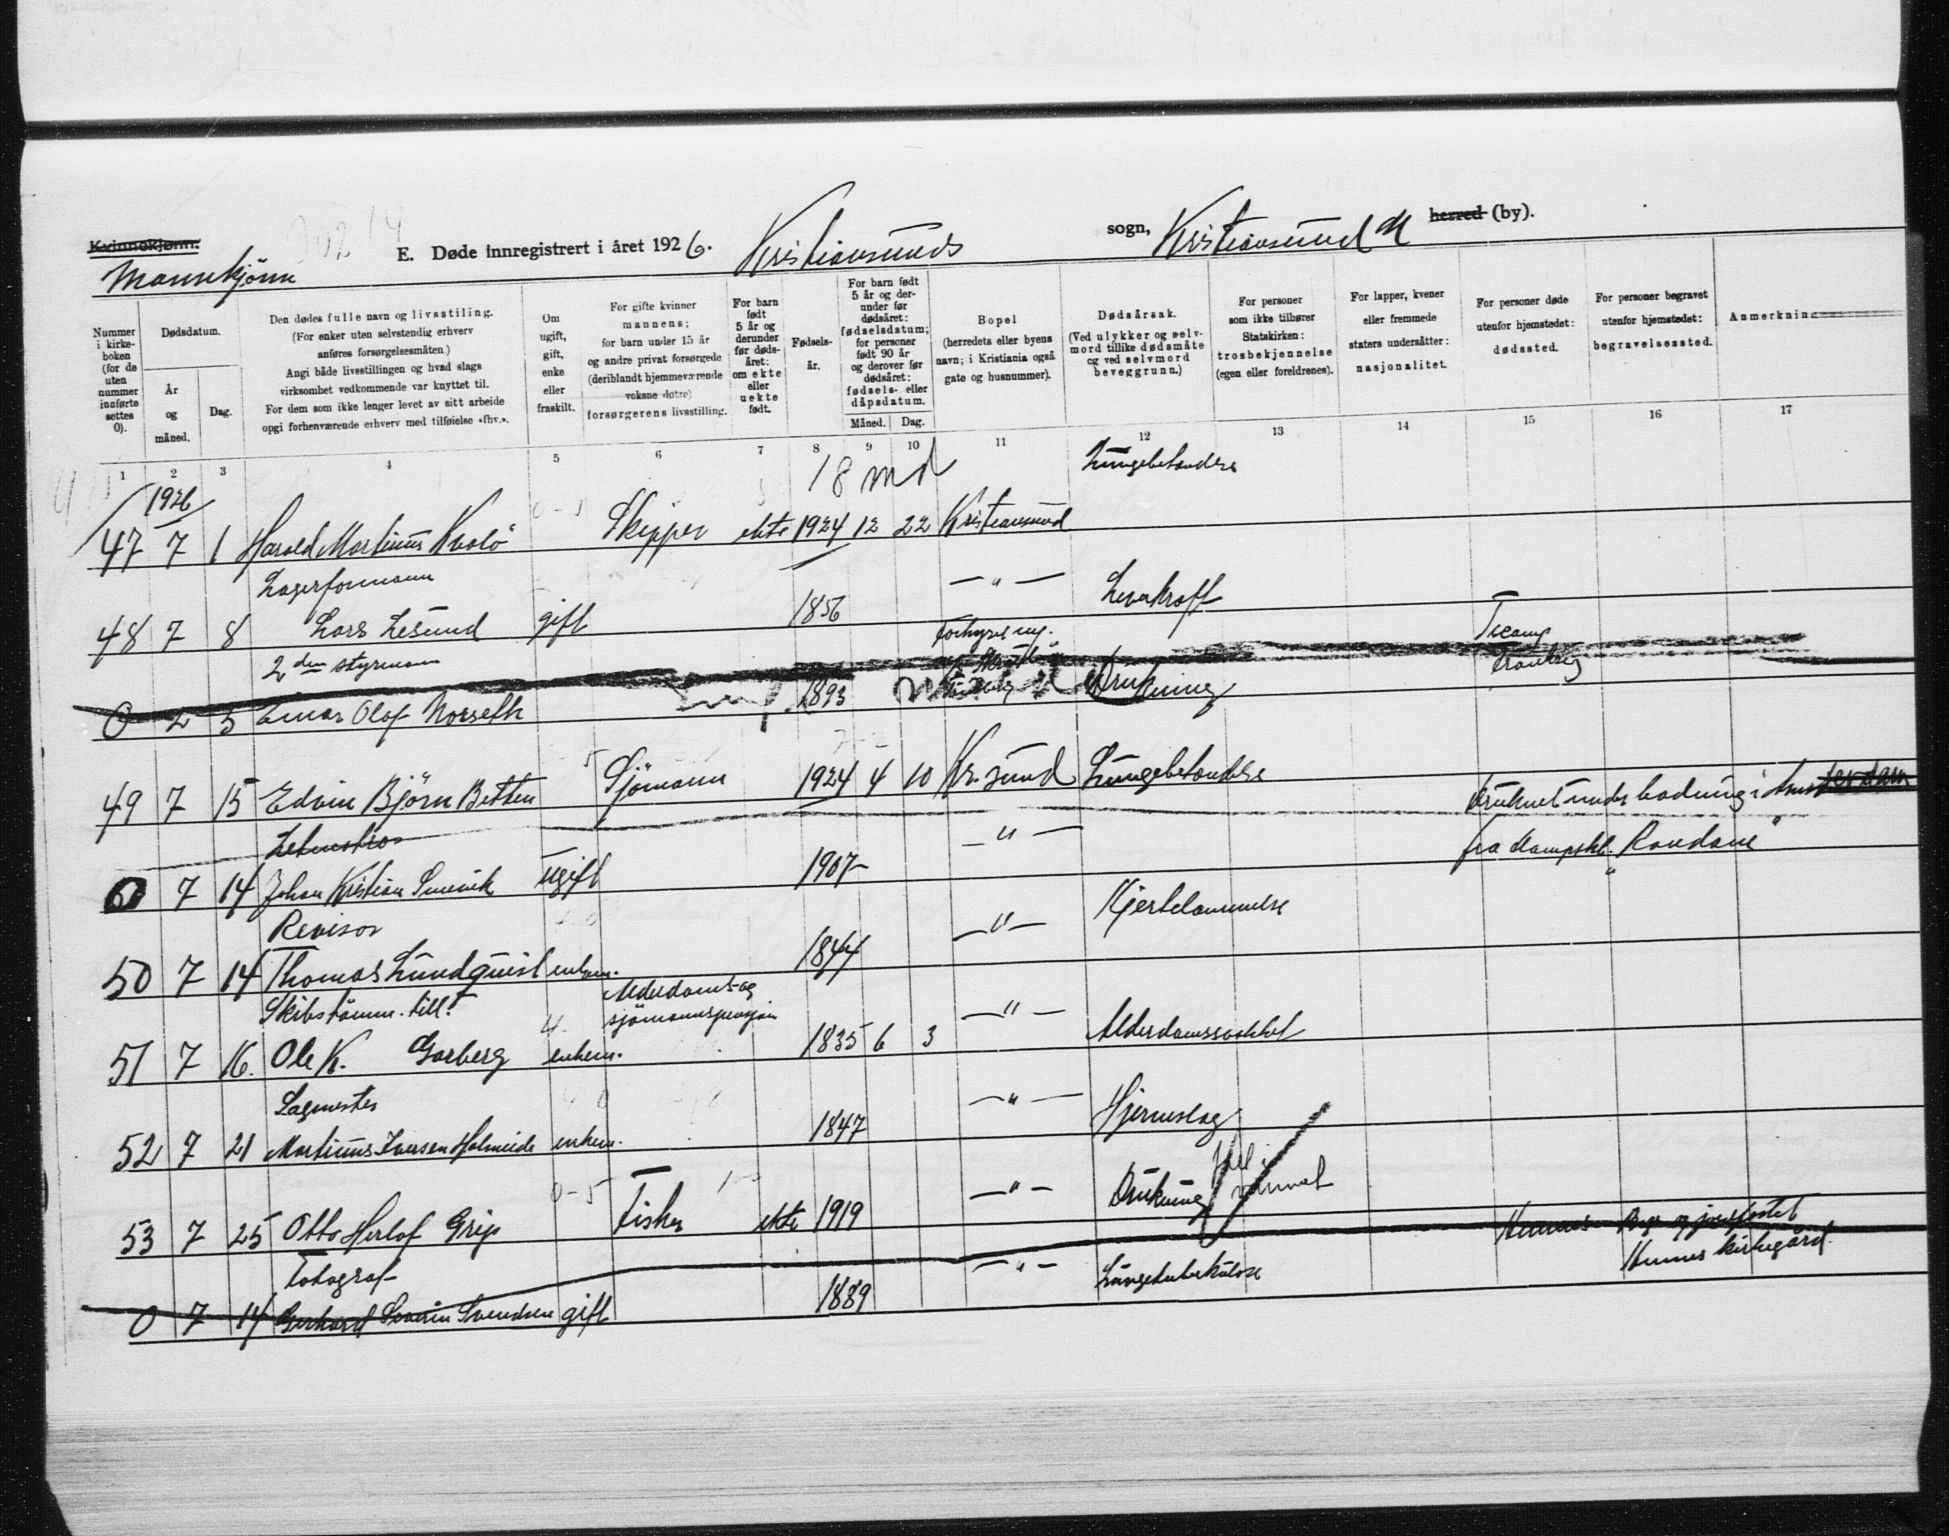 Kvinnekjønn.
Mannekjønn
E. Døde innregistrert i året 1926. Kristiansunds sogn, Kristiansund N herred (by).
Nummer i kirke-boken (for de uten nummer innførte settes 0).
Dødsdatum.
År og måned.
Dag.
Den dødes fulle navn og livsstilling.
(For enker uten selvstendig erhverv
anføres forsørgelsesmåten.)
Angi både livsstillingen og hvad slags
virksomhet vedkommende var knyttet til.
For dem som ikke lenger levet av sitt arbeide
opgi forhenværende erhverv med tilføielse «fhv.».
Om ugift, gift, enke eller fraskilt.
For gifte kvinner
mannens;
for barn under 15 år
og andre privat forsørgede
(deriblandt hjemmeværende
voksne døtre)
forsørgerens livsstilling.
For barn født 5 år og derunder før døds-året: om ekte eller uekte født.
Fødsels-år.
For barn født
5 år og der-
under før
dødsåret:
fødselsdatum;
for personer
født 90 år
og derover før
dødsåret:
fødsels- eller
dåpsdatum.
Måned. Dag.
Bopel
(herredets eller byens
navn; i Kristiania også
gate og husnummer).
Dødsårsak.
(Ved ulykker og selv-
mord tillike dødsmåte
og ved selvmord
beveggrunn.)
For personer
som ikke tilhører
Statskirken:
trosbekjennelse
(egen eller foreldrenes).
For lapper, kvener
eller fremmede
staters undersåtter:
nasjonalitet.
For personer døde
utenfor hjemstedet:
dødssted.
For personer begravet
utenfor hjemstedet:
begravelsessted.
Anmerkning
1 2 3 4 5 6 7 8 9 10 11 12 13 14 15 16 17
1926 18 md Lungebetendelse
47 7 1 Harald Martinus Kvalö Skipper ekte 1924 12 22 Kristiansund
Lagerformann
48 7 8 Lars Lesund gift 1856 — " — Leverkræft
2den styrmann
0 2 5 Einar Olaf Norseth 1893 Drukning
49 7 15 Edvin Björn Betten Sjömann 1924 4 10 Kr.sund Lungebetendelse
Letmatros
0 7 14 Johan Kristian Smevik ugift 1907 — " — druknet under badning i Amsterdam
fra dampsk. "Rondane"
Revisor
50 7 14 Thomas Lundquist enkem. 1844 — " — Hjertelammelse
Skibstömm. till. Alderdoms- og
sjömannspensjon
51 7 16. Ole K. Garberg enkem. 1835 6 3 — " — Alderdomssvakhet
Sagmester
52 7 21 Martinus Iversen Holmeide enkem. 1847 — " — Hjerneslag
53 7 25 Otto Herlof Grip Fisker ekte 1919 — " — Drukning fall i vannet
Fotograf
0 7 14 Gerhard Severin Svendsen gift 1889 — " — Lungetuberkulose Hennes Begr. og jordfestet
Hennes kirkegård.